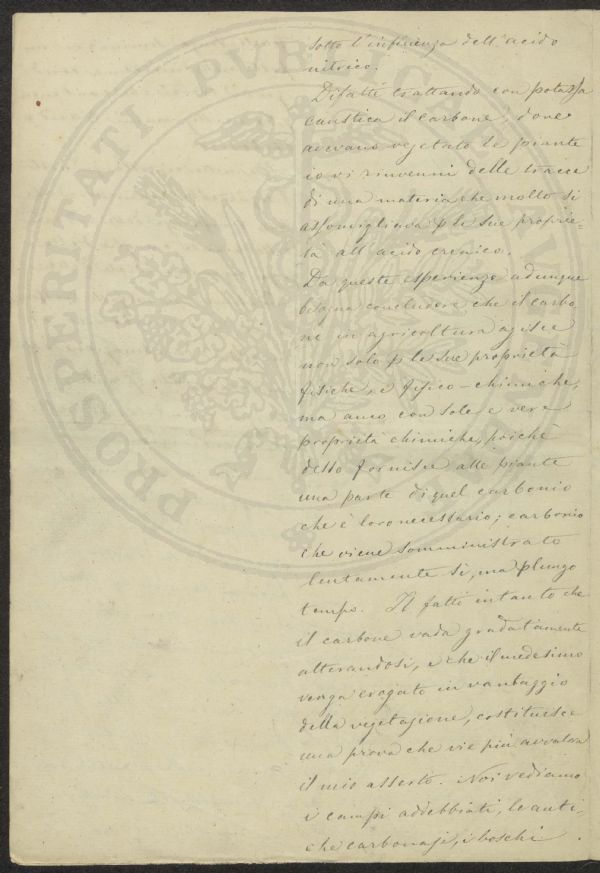 sotto l'influenza dell'acido
nitrico.
Difatti trattando con potassa
caustica il carbone, dove
avevano vegetato le piante
io vi rinvenni delle tracce
di una materia che molto si
assomigliava p le sue proprie=
tà all'acido crenico.
Da queste esperienze adunque
bisogna concludere che il carbo
ne in agricoltura agisce
non solo p le sue proprietà
fisiche, e fisico-chimiche,
ma anco con sole e vere
proprietà chimiche, poichè
desso fornisce alle piante
una parte di quel carbonio
che è loro necessario; carbonio
che viene somministrato
lentamente si, ma p lungo
tempo. Il fatti intanto che
il carbone vada gradatamente
alterandosi, e che il medesimo
venga erogato in vantaggio
della vegetazione, costituisce
una prova che vie più avvalora
il mio asserto. Noi vediamo
i campi addebbiati, le anti-
che carbonaje, i boschi
PROSPERITATI PUBLICAE